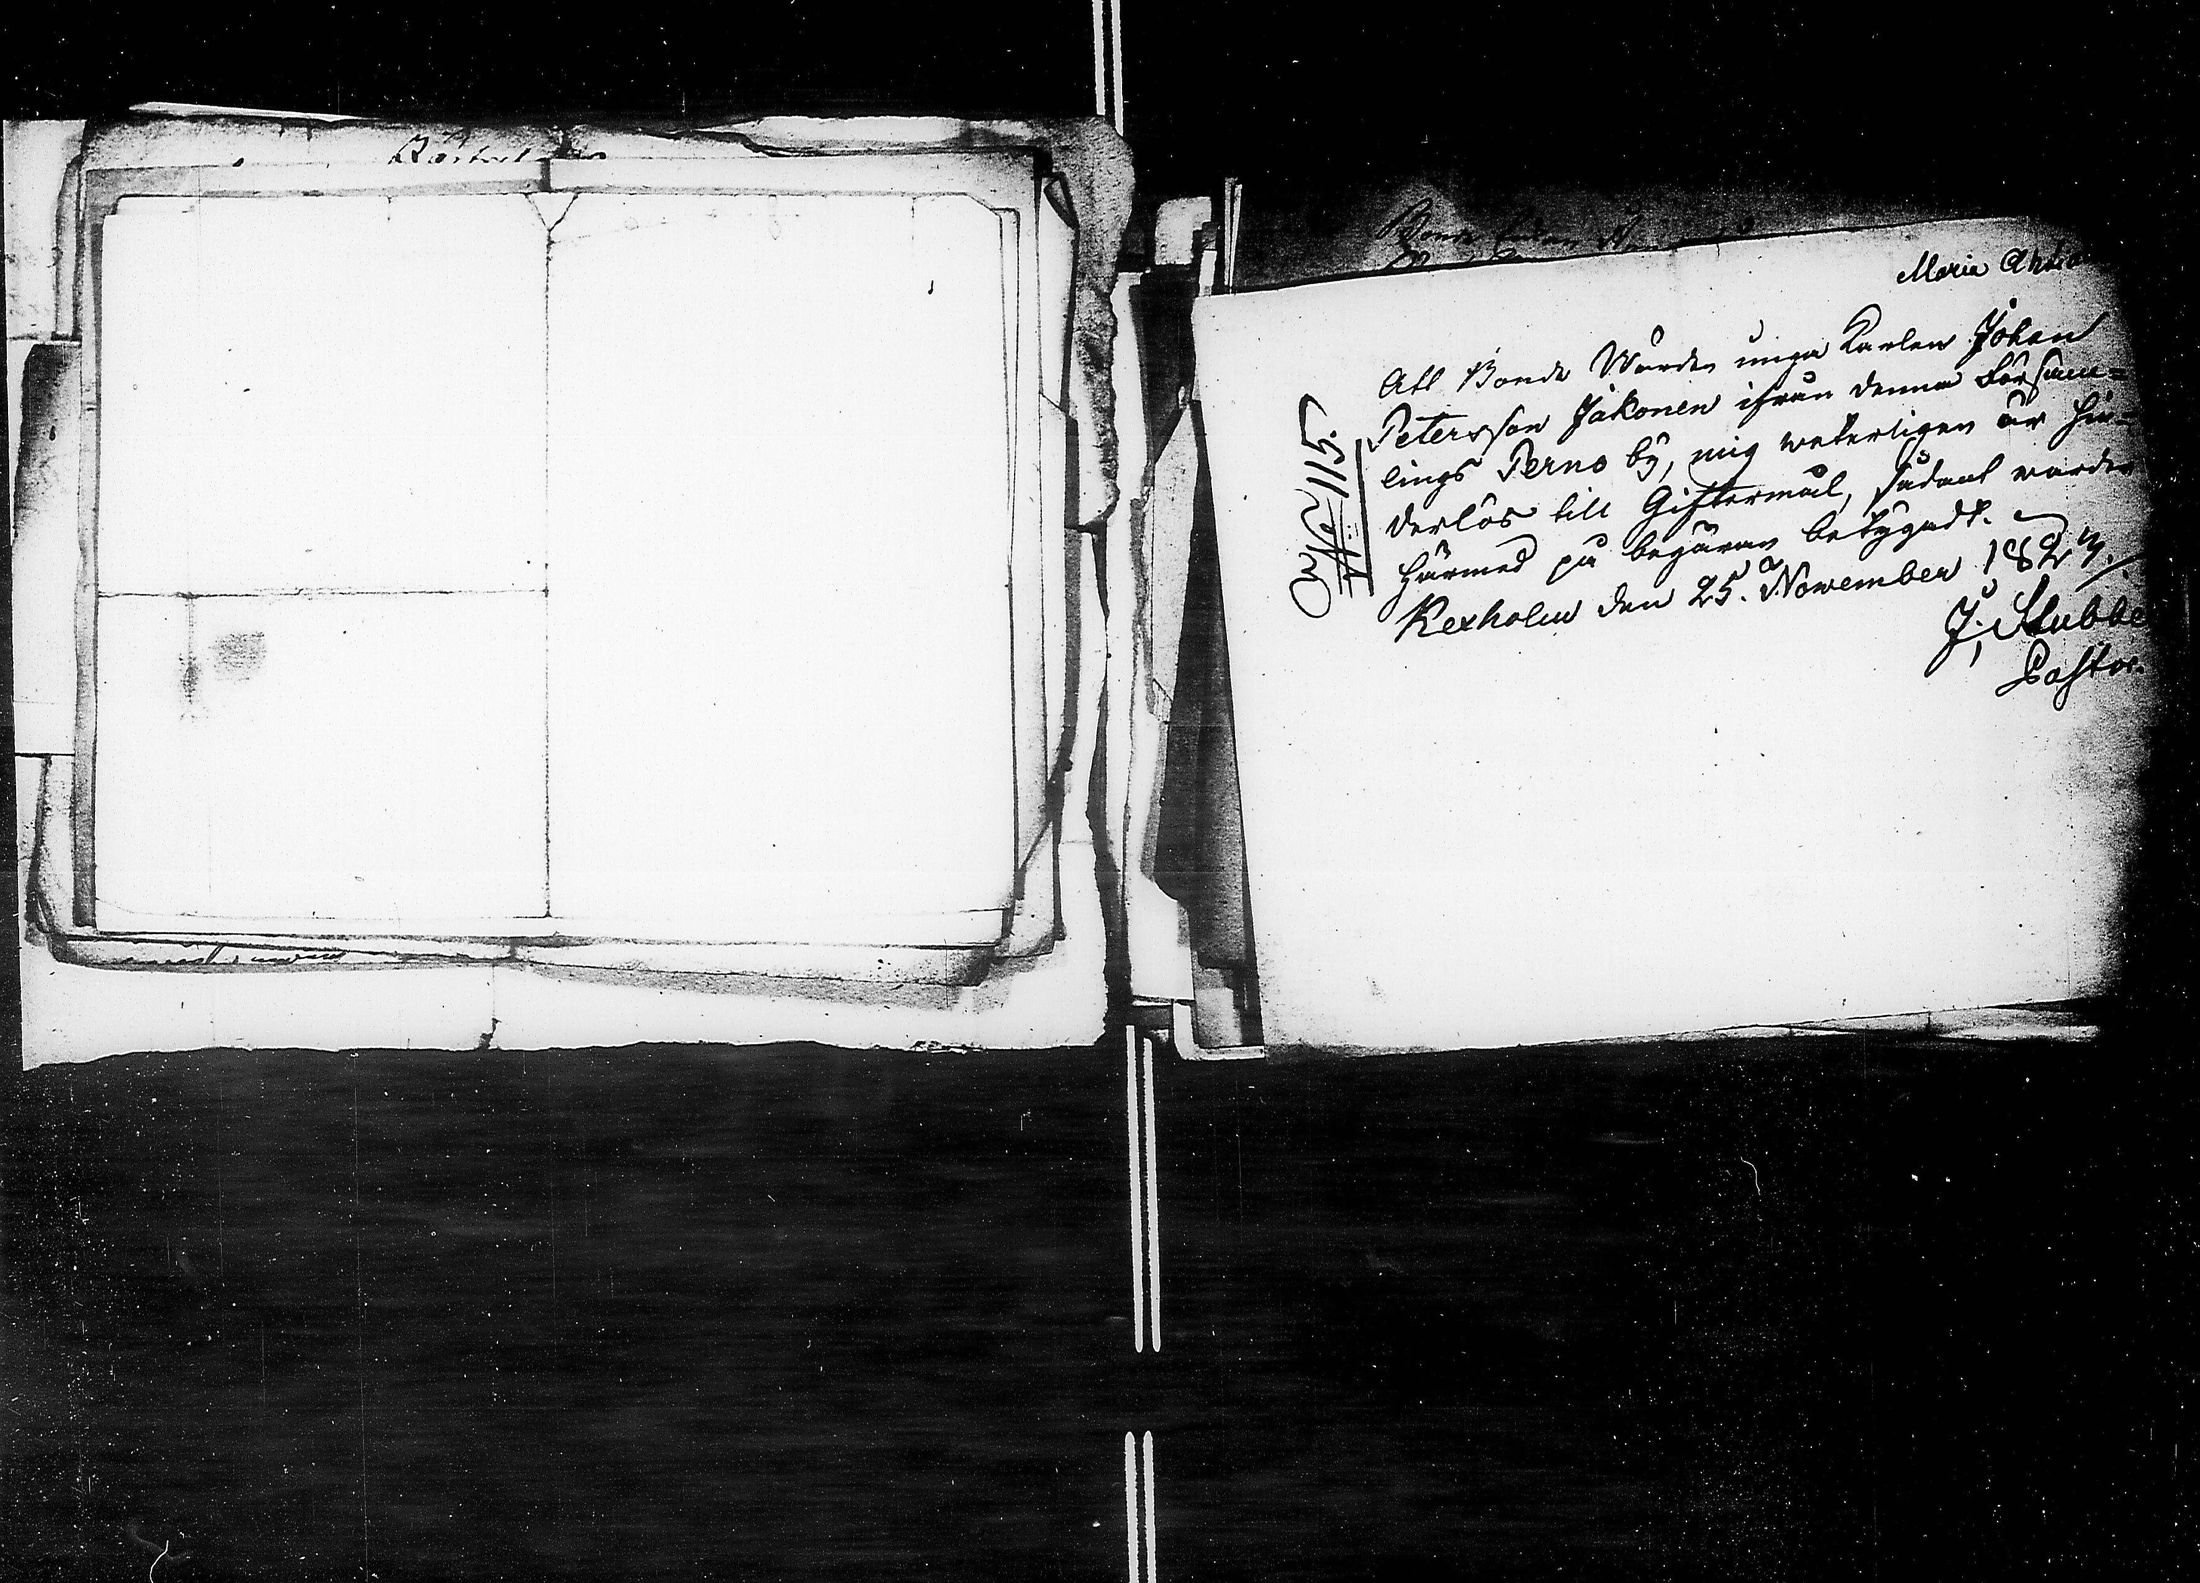 Maria
Att Bonde Sonen unga Karlen Johan
Petersson Jäkonen ifrån denna Försam-
lings Perno by, mig weterligen är hin-
derlös till Giftermål, sådant warder
härmed på begäran betygadt.
Kexholm den 25. November 1823.
J. Stubbe
Pastor.
No 115.